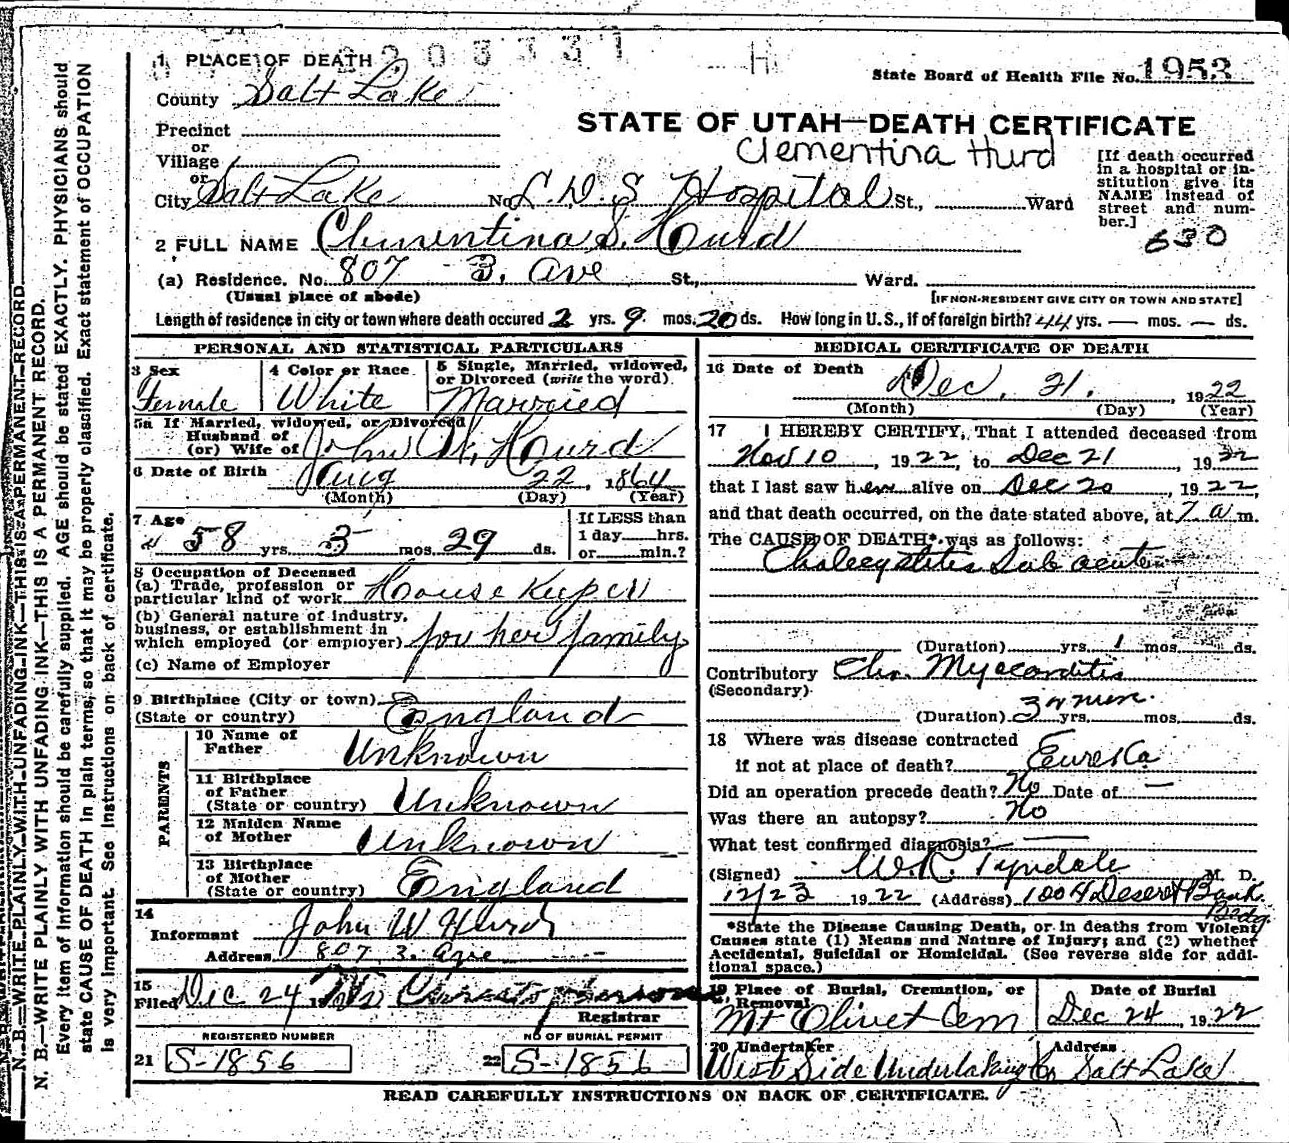 203331 H
1 PLACE OF DEATH
State Board of Health File No. 1953
County Salt Lake
STATE OF UTAH—DEATH CERTIFICATE
Clementina Hurd
Precinct
or
Village
or
City Salt Lake No. L.D.S Hospital St., Ward
[If death occurred in a hospital or in-
stitution give its
NAME instead of
street and num-
ber.]
630
2 FULL NAME Clementina S. Hourd
(a) Residence. No. 807 - 3. Ave St., Ward.
(Usual place of abode) [IF NON-RESIDENT GIVE CITY OR TOWN AND STATE]
Length of residence in city or town where death occured 2 yrs. 9 mos. 20 ds. How long in U.S., if of foreign birth? 44 yrs. — mos. — ds.
PERSONAL AND STATISTICAL PARTICULARS
3 Sex
Female
4 Color or Race
White
5 Single, Married, widowed,
or Divorced (write the word).
Married
5a If Married, widowed, or Divorced
Husband of
(or) Wife of John W. Hourd
6 Date of Birth Aug 22, 1864
(Month) (Day) (Year)
7 Age
58 yrs. 3 mos. 29 ds.
If LESS than
1 day hrs.
or min.?
8 Occupation of Deceased
(a) Trade, profession or
particular kind of work House Keeper
(b) General nature of industry,
business, or establishment in
which employed (or employer) for her family
(c) Name of Employer
9 Birthplace (City or town)
(State or country) England
PARENTS
10 Name of
Father Unknown
11 Birthplace
of Father
(State or country) Unknown
12 Maiden Name
of Mother Unknown
13 Birthplace
of Mother
(State or country) England
14
Informant John W Hurd
Address 807 3. Ave
15
Filed Dec 24 19
Registrar
REGISTERED NUMBER NO OF BURIAL PERMIT
21 S-1856 22 S-1856
MEDICAL CERTIFICATE OF DEATH
16 Date of Death Dec, 21, 1922
(Month) (Day) (Year)
17 I HEREBY CERTIFY, That I attended deceased from
Nov 10, 1922, to Dec 21, 1922
that I last saw her alive on Dec 20, 1922,
and that death occurred, on the date stated above, at 7 a m.
The CAUSE OF DEATH* was as follows:
Cholecystitis Sub acute
(Duration) yrs. 1 mos. ds.
Contributory Chr. Myocarditis
(Secondary)
(Duration) 3 yrs. mos. ds.
18 Where was disease contracted
if not at place of death? Eureka
Did an operation precede death? No Date of —
Was there an autopsy? No
What test confirmed diagnosis? —
(Signed) W.R. Tyndale M. D.
12/23 1922 (Address) 1004 Deseret Bank Bldg.
*State the Disease Causing Death, or in deaths from Violent
Causes state (1) Means and Nature of Injury; and (2) whether
Accidental, Suicidal or Homicidal. (See reverse side for addi-
tional space.)
19 Place of Burial, Cremation, or
Removal
Mt Olivet Cem
Date of Burial
Dec 24, 1922
20 Undertaker
West Side Undertaking Co
Address
Salt Lake
READ CAREFULLY INSTRUCTIONS ON BACK OF CERTIFICATE.
N. B.—WRITE PLAINLY WITH UNFADING INK—THIS IS A PERMANENT RECORD.
N. B.—WRITE PLAINLY WITH UNFADING INK—THIS IS A PERMANENT RECORD.
Every item of information should be carefully supplied. AGE should be stated EXACTLY. PHYSICIANS should
state CAUSE OF DEATH in plain terms, so that it may be properly classified. Exact statement of OCCUPATION
is very important. See instructions on back of certificate.